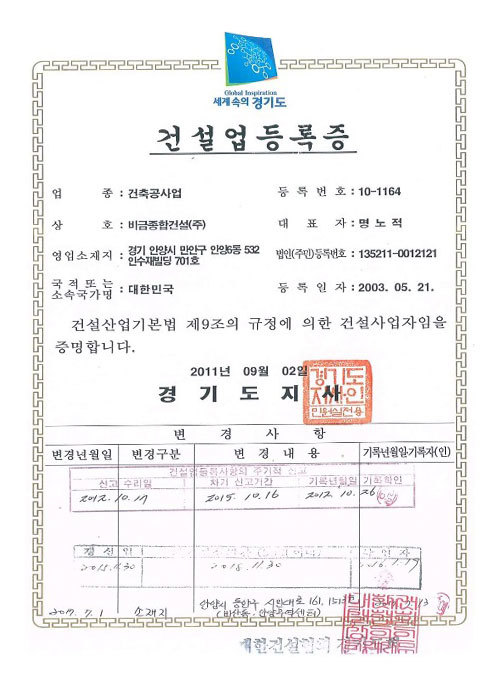 Global Inspiration
세계 속의 경기도
건설업등록증
업 종 : 건축공사업
등 록 번 호 : 10-1164
상 호 : 비금종합건설(주)
대 표 자 : 명 노 적
영업소재지 : 경기 안양시 만안구 안양6동 532
인수재빌딩 701호
법인(주민)등록번호 : 135211-0012121
국 적 또 는
소속국가명 : 대한민국
등 록 일 자 : 2003. 05. 21.
건설산업기본법 제9조의 규정에 의한 건설사업자임을
증명합니다.
2011년 09월 02일
경 기 도 지 사
경기도
지사인
민원실전용
변 경 사 항
변경년월일 변경구분 변 경 내 용 기록년월일·기록자(인)
건설업등록사항의 주기적 신고
신고 수리일 차기 신고기간 기록년월일 기록확인
2012. 10. 17 2015. 10. 16 2012. 10. 26
갱 신 일
2015. 11. 30 2018. 11. 30
2017. 7. 1 소재지 안양시 동안구 시민대로 161,